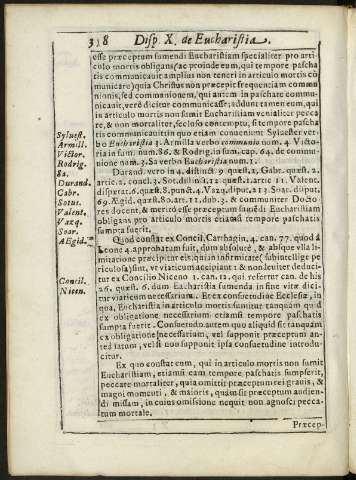 318 Disp. X. de Eucharistia.
esse præceptum sumendi Eucharistiam specialiter pro arti-
culo mortis obligans (ac proinde eum, qui tempore pascha
tis communicauit amplius non teneri in articulo mortis cō
municare) quia Christus non præcepit frequentiam commu
nionis, sed communionem, qui autem in paschate commu-
nicauit, verè dicitur communicasse; addunt tamen eum, qui
in articulo mortis non sumit Eucharistiam venialiter pecca
re, & non mortaliter, secluso contemptu, si tempore pascha
tis communicauit in quo etiam conueniunt Syluester ver-
bo Eucharistia 3. Armilla verbo communio num. 4. Victo
ria in sum. num. 86. & Rodrig. in sum. cap. 64. de commu-
nione num. 3. Sa verbo Eucharistia num. 1.
Durand. vero in 4. distinct. 9. quæst. 2. Gabr. quæst. 2.
artic. 2. concl. 3. Sot. distinct. 12. quæst. 1. artic. 11. Valent.
disputat. 6. quæst. 8. punct. 4. Vazq. disput. 213. Soar. disput.
69. Ægid. quæst. 80. art. 11. dub. 3. & communiter Docto
res docent, & meritò esse præceptum sumēdi Eucharistiam
obligans pro articulo mortis etiamsi tempore paschatis
sumpta fuerit.
Quod constat ex Concil. Carthagin. 4. can. 77. quod à
Leone 4. approbatum fuit, dum absolutè, & absque vlla li-
mitatione præcipitur eis, qui in infirmitate (subintellige pe
riculosa) sunt, ve viaticum accipiant & non leuiter deduci-
tur ex Concilio Niceno 1. can. 12. qui refertur can. de his
26. quæst. 6. dum Eucharistia sumenda in fine vitæ dici-
tur viaticum necessarium. Et ex consuetudine Ecclesiæ, in
qua, Eucharistia in articulo mortis sumitur tanquam quid
ex obligatione necessarium etiamsi tempore paschatis
sumpta fuerit. Consuetudo autem quo aliquid fit tanquam
ex obligatione necessarium, vel supponit præceptum an-
tea latum, vel si non supponit ipsa consuetudine introdu-
citur.
Ex quo constat eum, qui in articulo mortis non sumit
Eucharistiam, etiamsi eam tempore paschatis sumpserit,
peccare mortaliter, quia omittit præceptum rei grauis, &
magni momenti, & maioris, quàm sit præceptum audien-
di missam, in cuius omissione nequit non agnosci pecca-
tum mortale.
Præcep-
Syluest.
Armill.
Victor.
Rodrig.
Sa.
Durand.
Gabr.
Sotus.
Valent.
Vazq.
Soar.
Ægid.
Concil.
Nicen.